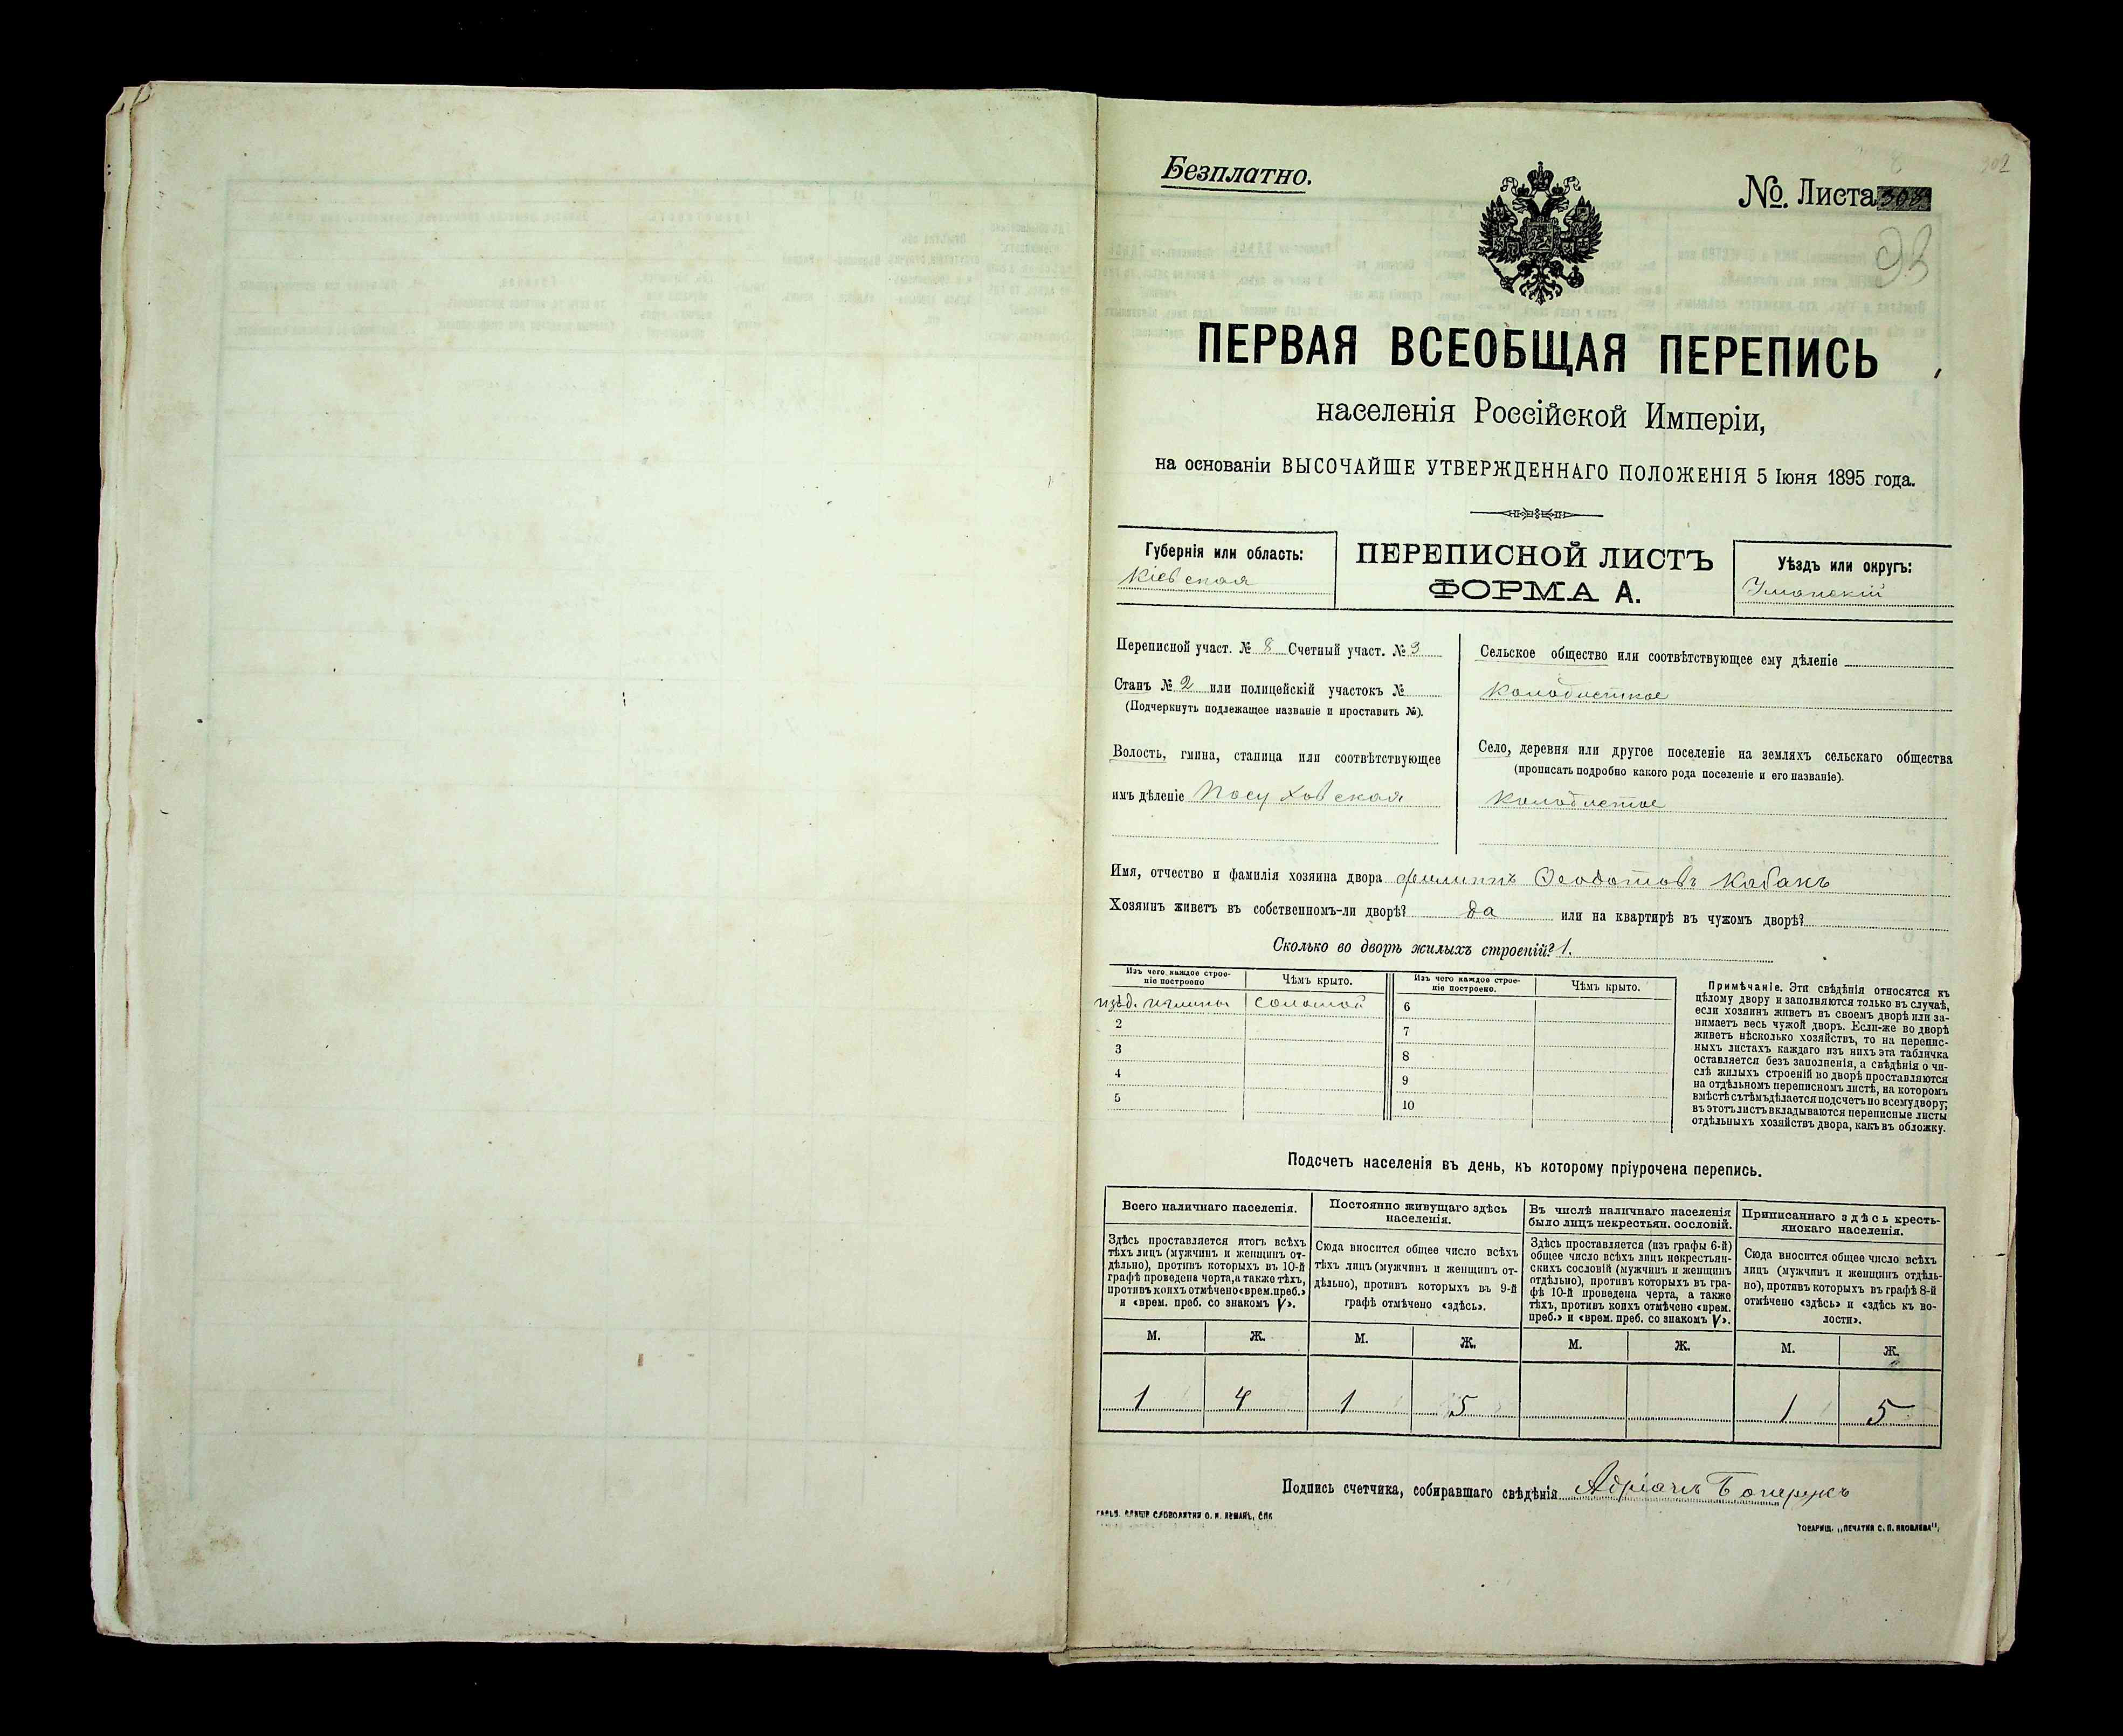 Безплатно.
№. Листа
93
ПЕРВАЯ ВСЕОБЩАЯ ПЕРЕПИСЬ
населенія Россійской Имперіи,
на основаніи ВЫСОЧАЙШЕ УТВЕРЖДЕННАГО ПОЛОЖЕНІЯ 5 Іюня 1895 года.
Губернія или область:
Кіевская
ПЕРЕПИСНОЙ ЛИСТЪ
ФОРМА А.
Уѣздъ или округъ:
Уманскій
Переписной участ. № 8 Счетный участ. № 3
Станъ № 2 или полицейскій участокъ №
(Подчеркнуть подлежащее названіе и проставить №).
Волость, гмина, станица или соотвѣтствующее
имъ дѣленіе Посуховская
Сельское общество или соотвѣтствующее ему дѣленіе
Колодисткое
Село, деревня или другое поселеніе на земляхъ сельскаго общества
(прописать подробно какого рода поселеніе и его названіе).
Колодистое
Имя, отчество и фамилія хозяина двора Филиппъ Ѳеодотовъ Кабакъ
Хозяинъ живетъ въ собственномъ-ли дворѣ? да или на квартирѣ въ чужомъ дворѣ?
Сколько во дворѣ жилыхъ строеній? 1.
Изъ чего каждое строе-
ніе построено
Чѣмъ крыто.
Изъ чего каждое строе-
ніе построено.
Чѣмъ крыто.
соломой
6
2
7
3
8
4
9
5
10
Примѣчаніе. Эти свѣдѣнія относятся къ
цѣлому двору и заполняются только въ случаѣ,
если хозяинъ живетъ въ своемъ дворѣ или за-
нимаетъ весь чужой дворъ. Если-же во дворѣ
живетъ нѣсколько хозяйствъ, то на перепис-
ныхъ листахъ каждаго изъ нихъ эта табличка
оставляется безъ заполненія, а свѣдѣнія о чи-
слѣ жилыхъ строеній во дворѣ проставляются
на отдѣльномъ переписномъ листѣ, на которомъ
вмѣстѣ съ тѣмъ дѣлается подсчетъ по всему двору;
въ этотъ листъ вкладываются переписные листы
отдѣльныхъ хозяйствъ двора, какъ въ обложку.
Подсчетъ населенія въ день, къ которому пріурочена перепись.
Всего наличнаго населенія.
Здѣсь проставляется итогъ всѣхъ
тѣхъ лицъ (мужчинъ и женщинъ от-
дѣльно), противъ которыхъ въ 10-й
графѣ проведена черта, а также тѣхъ,
противъ коихъ отмѣчено «врем. преб.»
и «врем. преб. со знакомъ V».
Постоянно живущаго здѣсь
населенія.
Сюда вносится общее число всѣхъ
тѣхъ лицъ (мужчинъ и женщинъ от-
дѣльно), противъ которыхъ въ 9-й
графѣ отмѣчено «здѣсь».
Въ числѣ наличнаго населенія
было лицъ некрестьян. сословій.
Здѣсь проставляется (изъ графы 6-й)
общее число всѣхъ лицъ некрестьян-
скихъ сословій (мужчинъ и женщинъ
отдѣльно), противъ которыхъ въ гра-
фѣ 10-й проведена черта, а также
тѣхъ, противъ коихъ отмѣчено «врем.
преб.» и «врем. преб. со знакомъ V».
Приписаннаго здѣсь кресть-
янскаго населенія.
Сюда вносится общее число всѣхъ
лицъ (мужчинъ и женщинъ отдѣль-
но), противъ которыхъ въ графѣ 8-й
отмѣчено «здѣсь» и «здѣсь къ во-
лости».
М. Ж. М. Ж. М. Ж. М. Ж.
1 4 1 5 1 5
Подпись счетчика, собиравшаго свѣдѣнія Адріанъ
ТОВАРИЩ. „ПЕЧАТНЯ С. П. ЯКОВЛЕВА“,